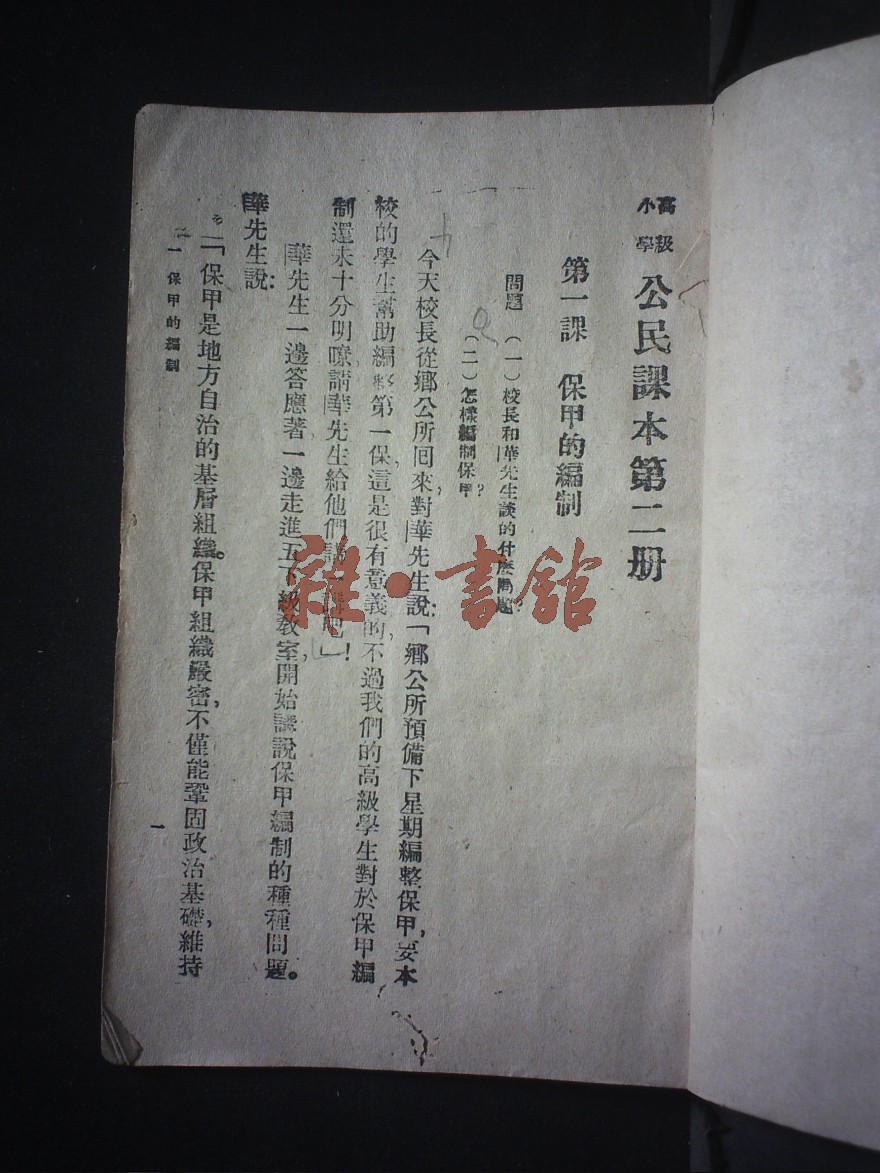 高級小學 公民課本第二册
第一課 保甲的編制
問題 (一)校長和華先生談的什麽問題?
(二)怎樣編制保甲?
今天校長從鄉公所囘來,對華先生說:「鄉公所預備下星期編整保甲,要本
校的學生幫助編整第一保,這是很有意義的,不過我們的高級學生對於保甲編
制還未十分明暸,請華先生給他們講一講吧」!
華先生一邊答應著一邊走進五下級敎室,開始講說保甲編制的種種問題。
華先生說:
「保甲是地方自治的基層組織。保甲組織嚴密,不僅能鞏固政治基礎,維持
一 保甲的編制
一
雜·書館